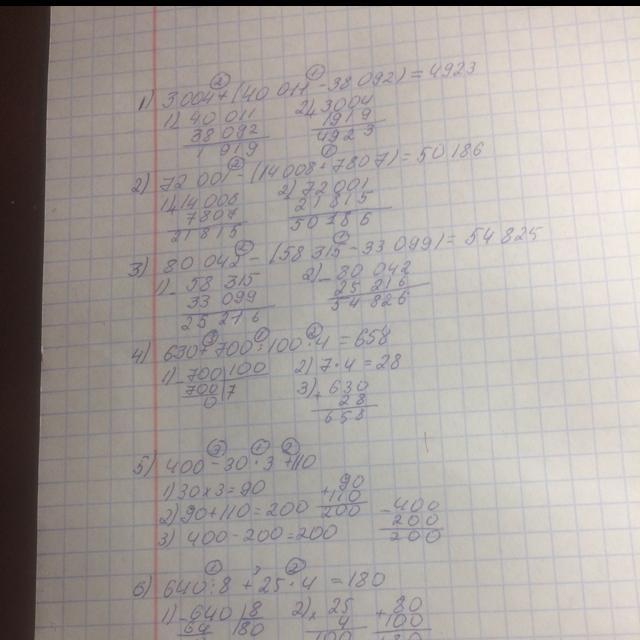 1) 3004+(40 011-38 092)=4923
1) 40 011 2) 3004
38 092 1919
1 919 4923
2) 72 001-(14 008+7807)=50 186
1) 14 008 2) 72001
7807 21815
21815 50186
3) 80 042-(58 315-33 099)=54 825
1) - 58 315 2) - 80 042
33 099 25 216
25 216 54 826
4) 630+700:100·4=658
1) 700 100 2) 7·4=28
700 7 3) + 630
0 28
658
5) 400-30·3+110
1) 30×3=90 +90
2) 90+110=200 110 -400
3) 400-200=200 200 200
200
6) 640:8+25·4=180
1) -640 8 2) × 25 +80
64 180 4 100
100